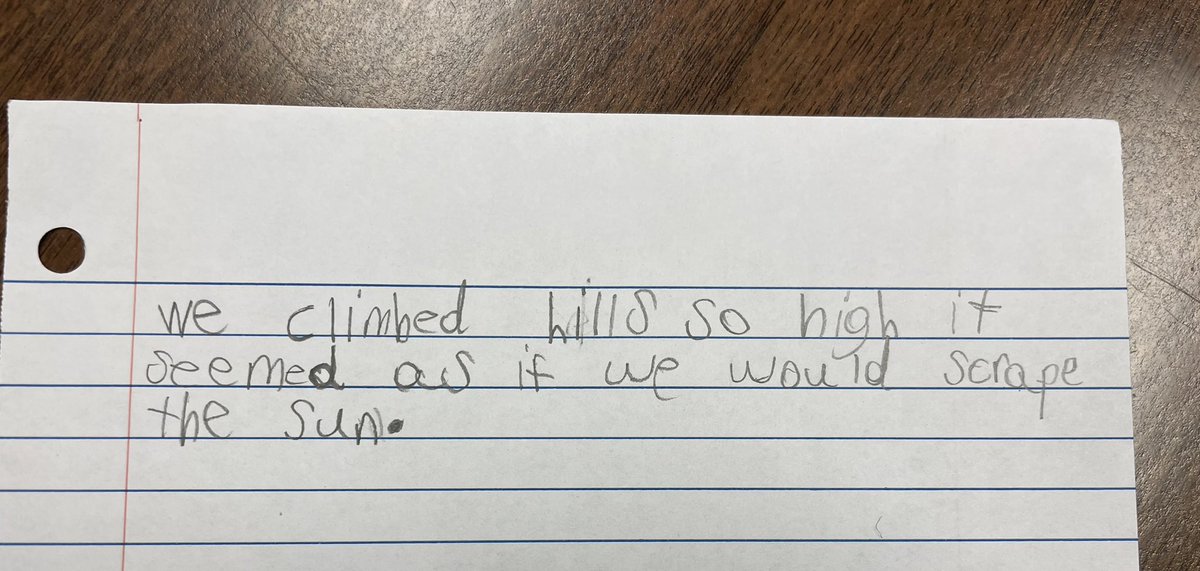 we climbed hills so high it
seemed as if we would scrape
the sun.